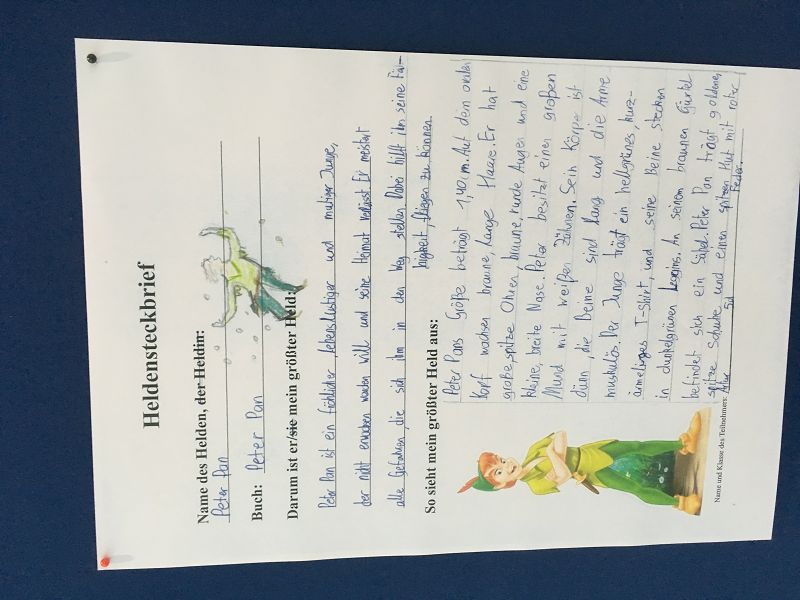 Heldensteckbrief
Name des Helden, der Heldin:
Peter Pan
Buch: Peter Pan
Darum ist er/sie mein größter Held:
Peter Pan ist ein fröhlicher, lebenslustiger und mutiger Junge,
der nicht erwachsen werden will und seine Heimat verlässt. Er meistert
alle Gefahren, die sich ihm in den Weg stellen. Dabei hilft ihm seine Fä-
higkeit, fliegen zu können.
So sieht mein größter Held aus:
Peter Pans Größe beträgt 1,40 m. Auf dem ovalen
Kopf wachsen braune, lange Haare. Er hat
große, spitze Ohren, braune, runde Augen und eine
kleine, breite Nase. Peter besitzt einen großen
Mund mit weißen Zähnen. Sein Körper ist
dünn, die Beine sind lang und die Arme
muskulös. Der Junge trägt ein hellgrünes, kurz-
ärmeliges T-Shirt, und seine Beine stecken
in dunkelgrünen Leggins. An seinem braunen Gürtel
befindet sich ein Säbel. Peter Pan trägt goldene,
spitze Schuhe und einen spitzen Hut mit roter
Feder.
Name und Klasse des Teilnehmers: Artur 5d